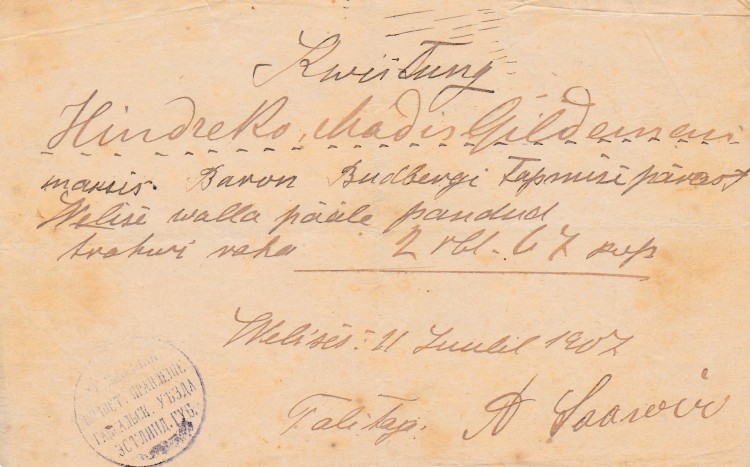 Kwiitung
Hindreko, Madis Gildemani
maksis. Baron Budbergi Tapmisi pärast
Welise walla pääle pandud
trahwi raha 2 rbl. 67 kop
Welises: 11 Juulil 1907
Talitaja: A Saarwir
ВОЛОСТ. ПРАВЛЕНІЕ.
ГАПСАЛЬСК. УѢЗДА
ЭСТЛЯНД. ГУБ.